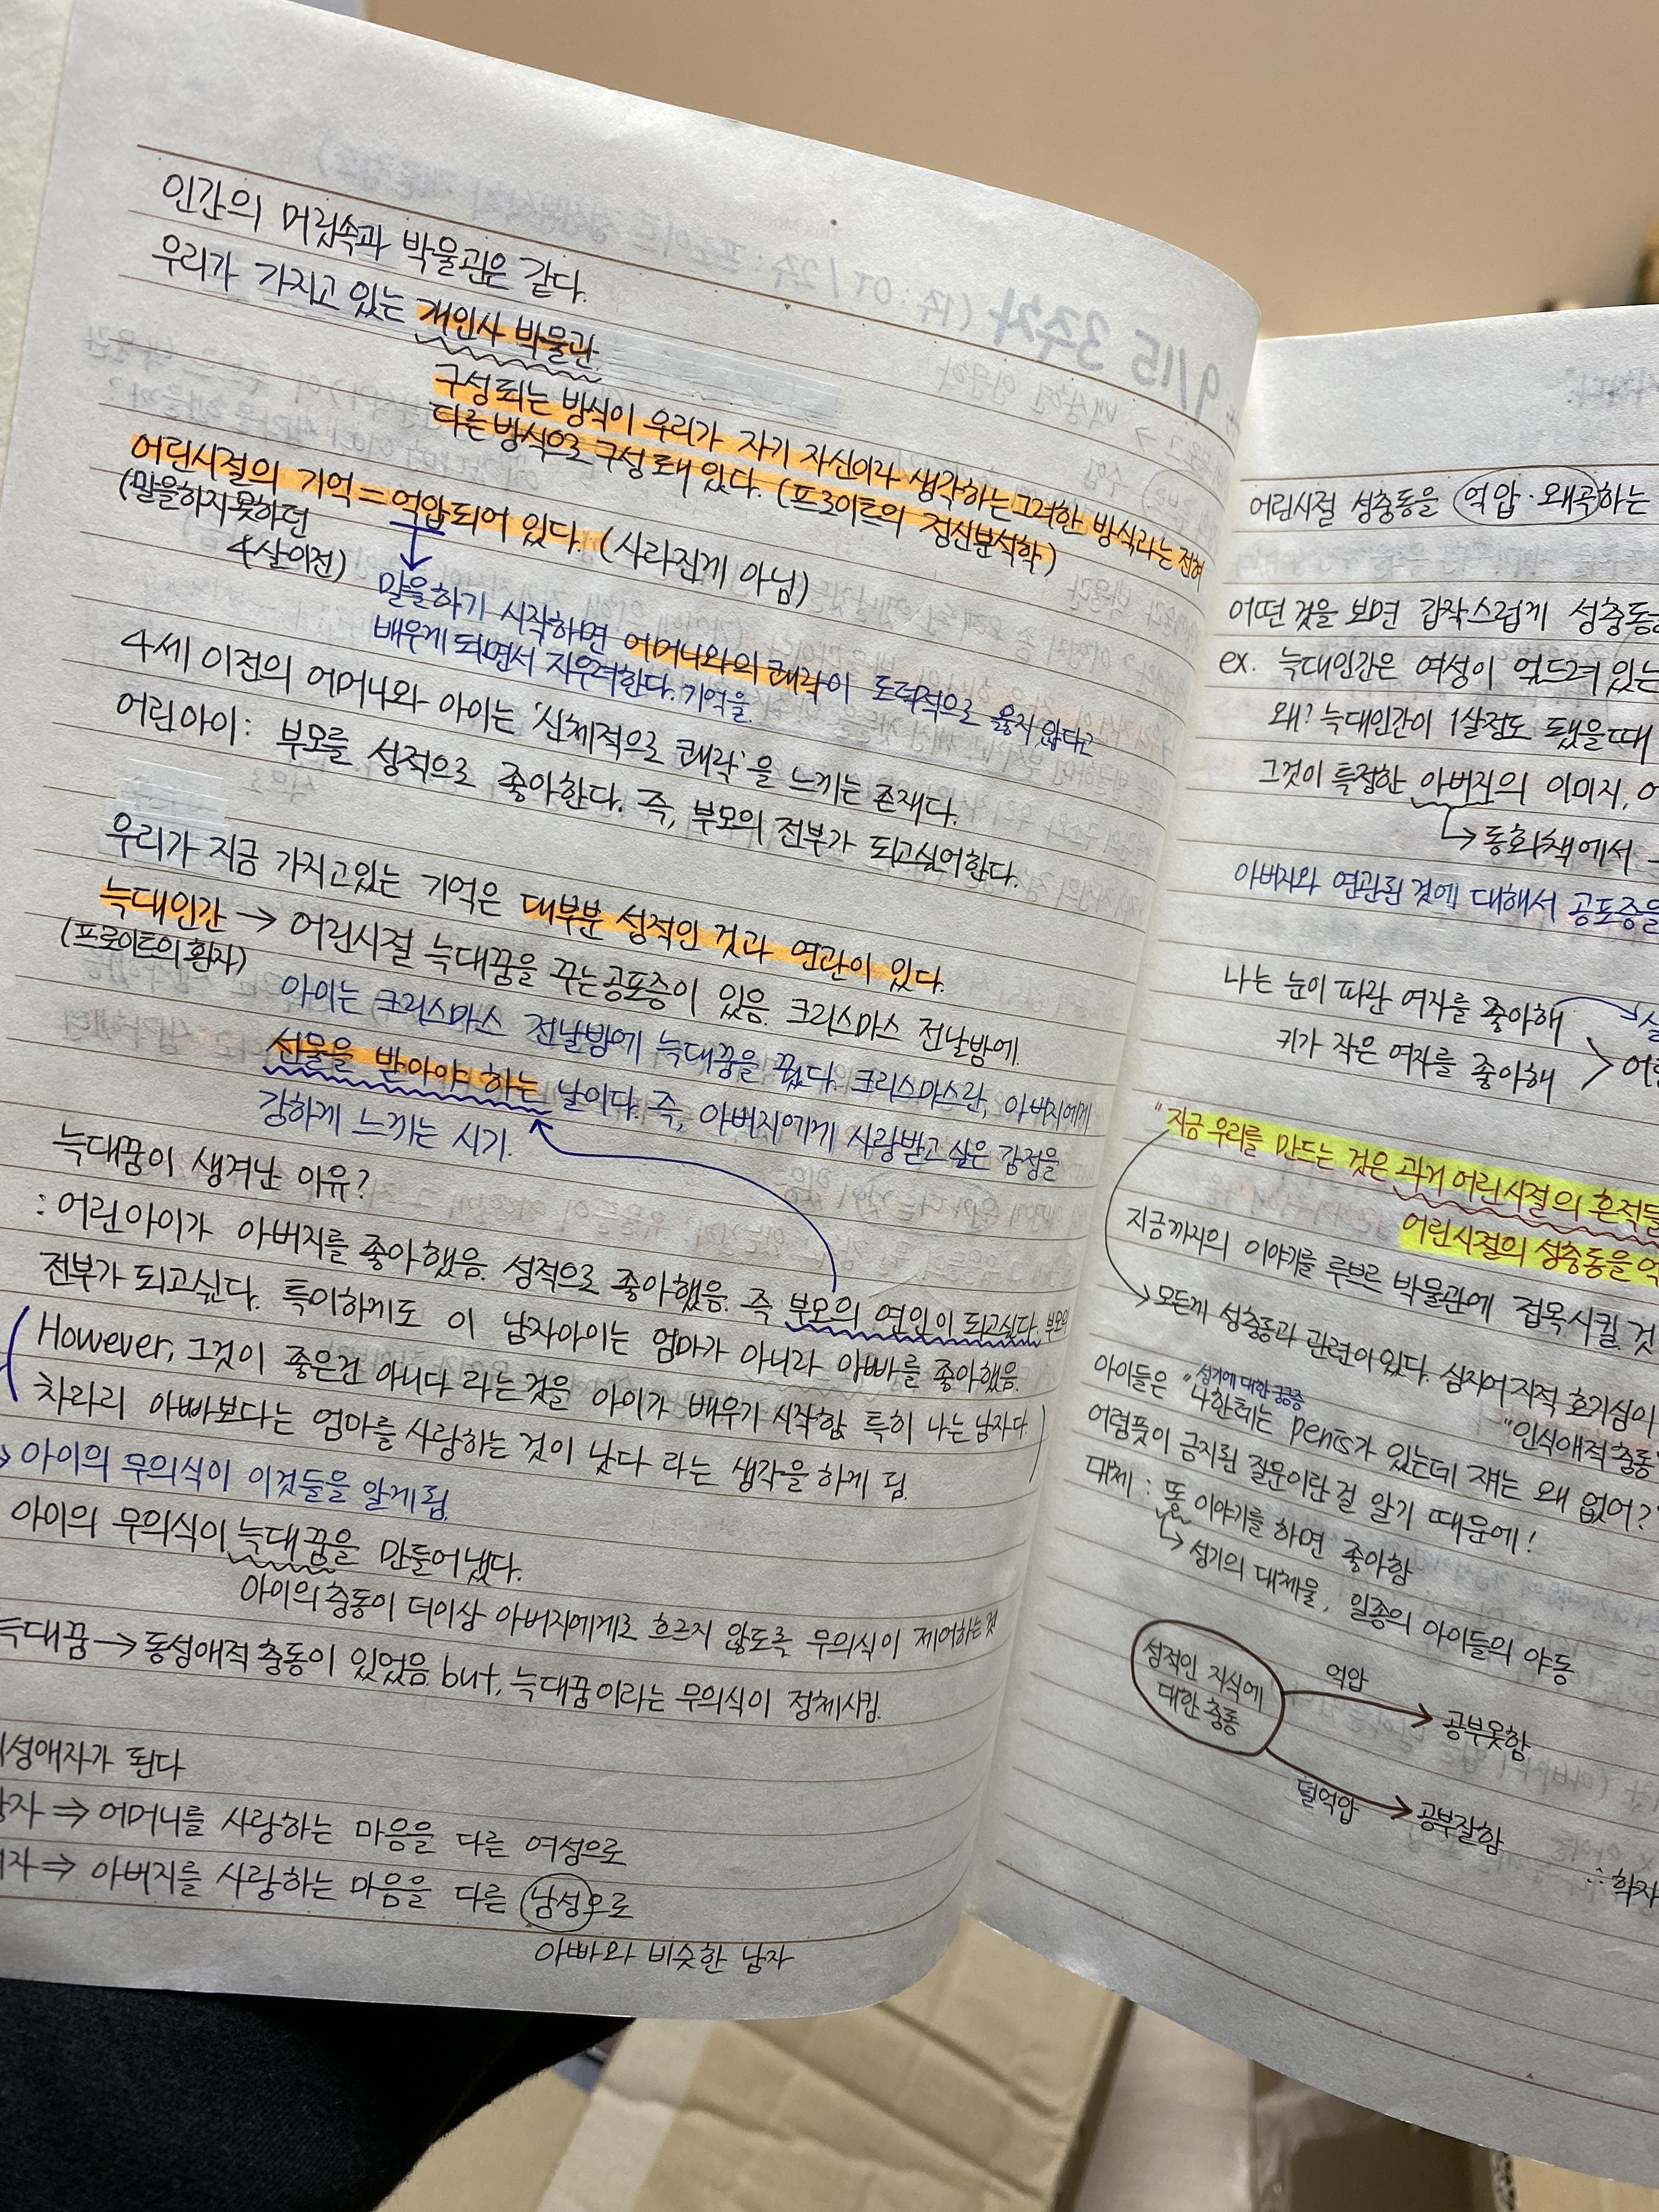 인간의 머릿속과 박물관은 같다.
우리가 가지고 있는 개인사 박물관.
구성되는 방식이 우리가 자기 자신이라 생각하는 그러한 방식이라는 전혀
다른 방식으로 구성돼 있다. (프로이트의 정신분석학)
어린시절의 기억 = 억압되어 있다. (사라진게 아님)
(말을하지못하던
4살이전)
말을하기 시작하면 어머니와의 쾌락이 도덕적으로 옳지 않다고
배우게 되면서 지우려한다. 기억을.
4세 이전의 어머니와 아이는 '신체적으로 쾌락'을 느끼는 존재다.
어린아이: 부모를 성적으로 좋아한다. 즉, 부모의 전부가 되고싶어한다.
우리가 지금 가지고있는 기억은 대부분 성적인 것과 연관이 있다.
늑대인간 → 어린시절 늑대꿈을 꾸는공포증이 있음. 크리스마스 전날밤에.
(프로이트의 환자)
아이는 크리스마스 전날밤에 늑대꿈을 꿨다. 크리스마스란, 아버지에게
선물을 받아야 하는 날이다. 즉, 아버지에게 사랑받고 싶은 감정을
강하게 느끼는 시기.
늑대꿈이 생겨난 이유?
: 어린아이가 아버지를 좋아했음. 성적으로 좋아했음. 즉 부모의 연인이 되고싶다. 부모의
전부가 되고싶다. 특이하게도 이 남자아이는 엄마가 아니라 아빠를 좋아했음.
However, 그것이 좋은건 아니다 라는것을 아이가 배우기 시작함. 특히 나는 남자다.
차라리 아빠보다는 엄마를 사랑하는 것이 낫다 라는 생각을 하게 됨.
→ 아이의 무의식이 이것들을 알게됨.
아이의 무의식이 늑대꿈을 만들어냈다.
아이의 충동이 더이상 아버지에게로 흐르지 않도록 무의식이 제어하는 것
늑대꿈 → 동성애적 충동이 있었음. but, 늑대꿈이라는 무의식이 정체시킴.
성애자가 된다
자 ⇒ 어머니를 사랑하는 마음을 다른 여성으로
자 ⇒ 아버지를 사랑하는 마음을 다른 남성으로
아빠와 비슷한 남자
어린시절 성충동을 억압·왜곡하는
어떤 것을 보면 갑작스럽게 성충동
ex. 늑대인간은 여성이 엎드려 있는
왜? 늑대인간이 1살정도 됐을때
그것이 특정한 아버지의 이미지,
→ 동화책에서
아버지와 연관된 것에 대해서 공포증을
나는 눈이 파란 여자를 좋아해
키가 작은 여자를 좋아해
"지금 우리를 만드는 것은 과거 어린시절의 흔적들
어린시절의 성충동을 억
지금까지의 이야기를 루브르 박물관에 접목시킬 것
→ 모든게 성충동과 관련이있다. 심지어 지적 호기심이
"인식애적충동"
성기에 대한 궁금증
아이들은 "나한테는 penis가 있는데 쟤는 왜 없어?"
어렴풋이 금지된 질문이란 걸 알기 때문에!
대체 : 똥 이야기를 하면 좋아함
→ 성기의 대체물, 일종의 아이들의 야동
성적인 지식에
대한 충동
억압
공부못함
덜억압
공부잘함
∴ 학자